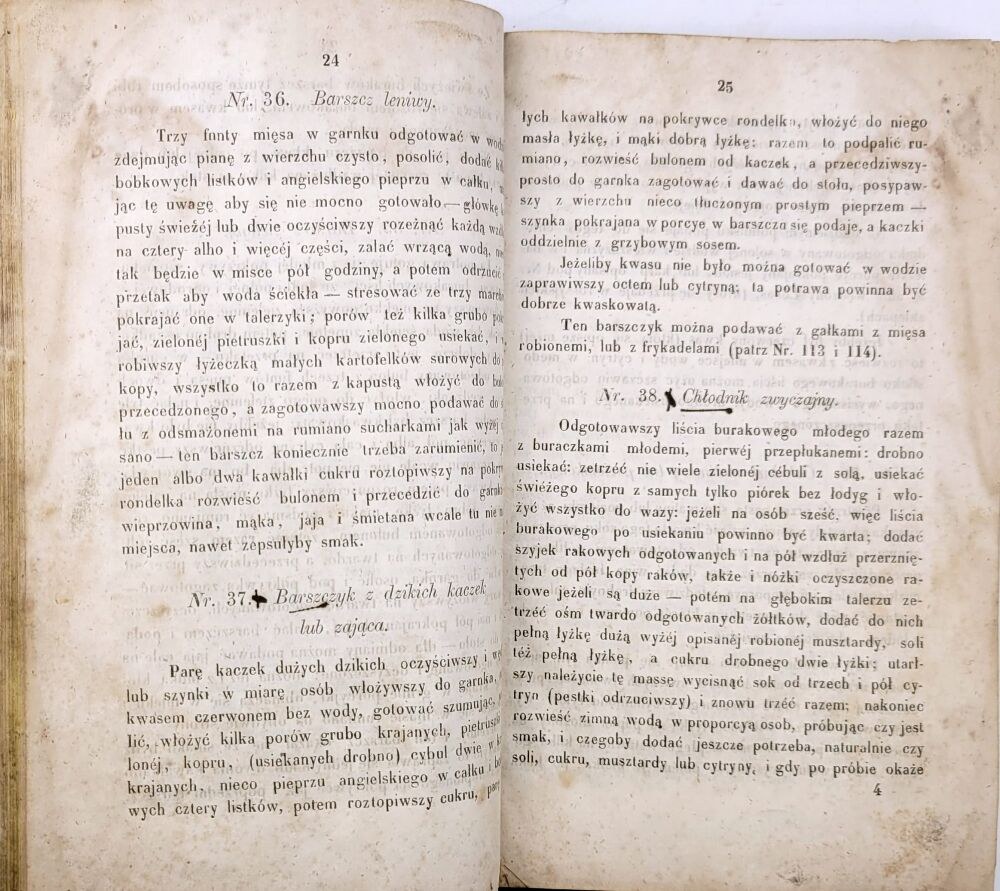 24
Nr. 36. Barszcz leniwy.
Trzy funty mięsa w garnku odgotować w
zdejmując pianę z wierzchu czysto, posolić, dodać
bobkowych listków i angielskiego pieprzu w całku,
jąc tę uwagę aby się nie mocno gotowało,— główkę
pusty świeżéj lub dwie oczyściwszy rozeźnąć każdą
na cztery alho i więcéj części, zalać wrzącą wodą,
tak będzie w misce pół godziny, a potém odrzucić
przetak aby woda ściekła — stresować ze trzy
pokrajać one w talerzyki; porów też kilka grubo
jać, zielonéj pietruszki i kopru zielonego usiekać, i
robiwszy łyżeczką małych kartofelków surowych do
kopy, wszystko to razem z kapustą włożyć do
przecedzonego, a zagotowawszy mocno podawać do
łu z odsmażonemi na rumiano sucharkami jak wyżéj
sano — ten barszcz koniecznie trzeba zarumienić, to
jeden albo dwa kawałki cukru roztopiwszy na
rondelka rozwieść bulonem i przecedzić do
wieprzowina, mąka, jaja i śmietana wcale tu nie
miejsca, nawet zepsułyby smak.
Nr. 37. Barszczyk z dzikich kaczek
lub zająca.
Parę kaczek dużych dzikich oczyściwszy i
lub szynki w miarę osób włożywszy do garnka,
kwasem czerwonem bez wody, gotować szumując,
lić, włożyć kilka porów grubo krajanych,
lonéj, kopru, (usiekanych drobno) cybul dwie w
krajanych, nieco pieprzu angielskiego w całku i
wych cztery listków, potem roztopiwszy cukru,
25
łych kawałków na pokrywce rondelka, włożyć do niego
masła łyżkę, i mąki dobrą łyżkę: razem to podpalić ru-
miano, rozwieść bulonem od kaczek, a przecedziwszy
prosto do garnka zagotować i dawać do stołu, posypaw-
szy z wierzchu nieco tłuczonym prostym pieprzem —
szynka pokrajana w porcye w barszczu się podaje, a kaczki
oddzielnie z grzybowym sosem.
Jeżeliby kwasu nie było można gotować w wodzie
zaprawiwszy octem lub cytryną; ta potrawa powinna być
dobrze kwaskowatą.
Ten barszczyk można podawać z gałkami z mięsa
robionemi, lub z frykadelami (patrz Nr. 113 i 114).
Nr. 38. Chłodnik zwyczajny.
Odgotowawszy liścia burakowego młodego razem
z buraczkami młodemi, pierwéj przepłukanemi: drobno
usiekać: zetrzéć nie wiele zielonéj cébuli z solą, usiekać
świéżego kopru z samych tylko piórek bez łodyg i wło-
żyć wszystko do wazy: jeżeli na osób sześć, więc liścia
burakowego po usiekaniu powinno być kwarta; dodać
szyjek rakowych odgotowanych i na pół wzdłuż przerznię-
tych od pół kopy raków, także i nóżki oczyszczone ra-
kowe jeżeli są duże — potém na głębokim talerzu ze-
trzéć ośm twardo odgotowanych żółtków, dodać do nich
pełną łyżkę dużą wyżéj opisanéj robionéj musztardy, soli
téż pełną łyżkę, a cukru drobnego dwie łyżki; utarł-
szy należycie tę massę wycisnąć sok od trzech i pół cy-
tryn (pestki odrzuciwszy) i znowu trzéć razem; nakoniec
rozwieść zimną wodą w proporcyą osob, próbując czy jest
smak, i czegoby dodać jeszcze potrzeba, naturalnie czy
soli, cukru, musztardy lub cytryny, i gdy po próbie okaże
4